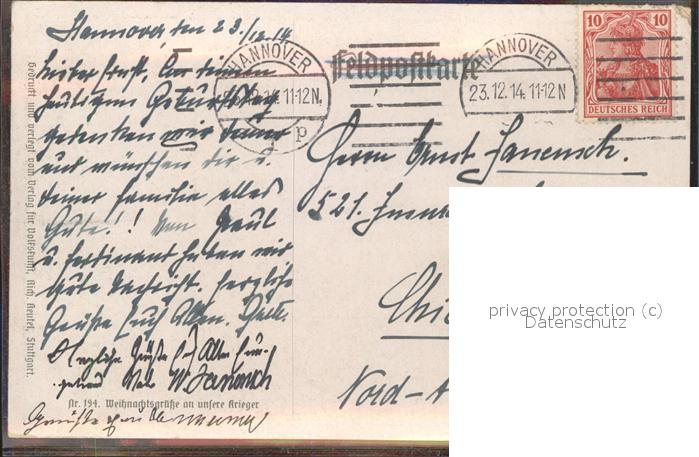 Hannover, den 23./12.14
Lieber Ernst, An deinem
heutigen Geburtstag
gedenken wir deiner
und wünschen dir u.
deiner Familie alles
Gute!! Von Paul
u. Ferdinand haben wir
gute Nachricht. Herzliche
Grüße Euch Allen.
Herzliche Grüße Euch Allen
W. Janensch
Nr. 194. Weihnachtsgrüße an unsere Krieger
Grüße
Gedruckt und verlegt vom Verlag für Volkskunst, Rich. Keutel, Stuttgart.
HANNOVER
23.12.14. 11-12 N.
p
Feldpostkarte
HANNOVER
23.12.14. 11-12 N
10 10
DEUTSCHES REICH
Herrn Ernst Janensch.
521.
Chi
Nord-A
privacy protection (c)
Datenschutz